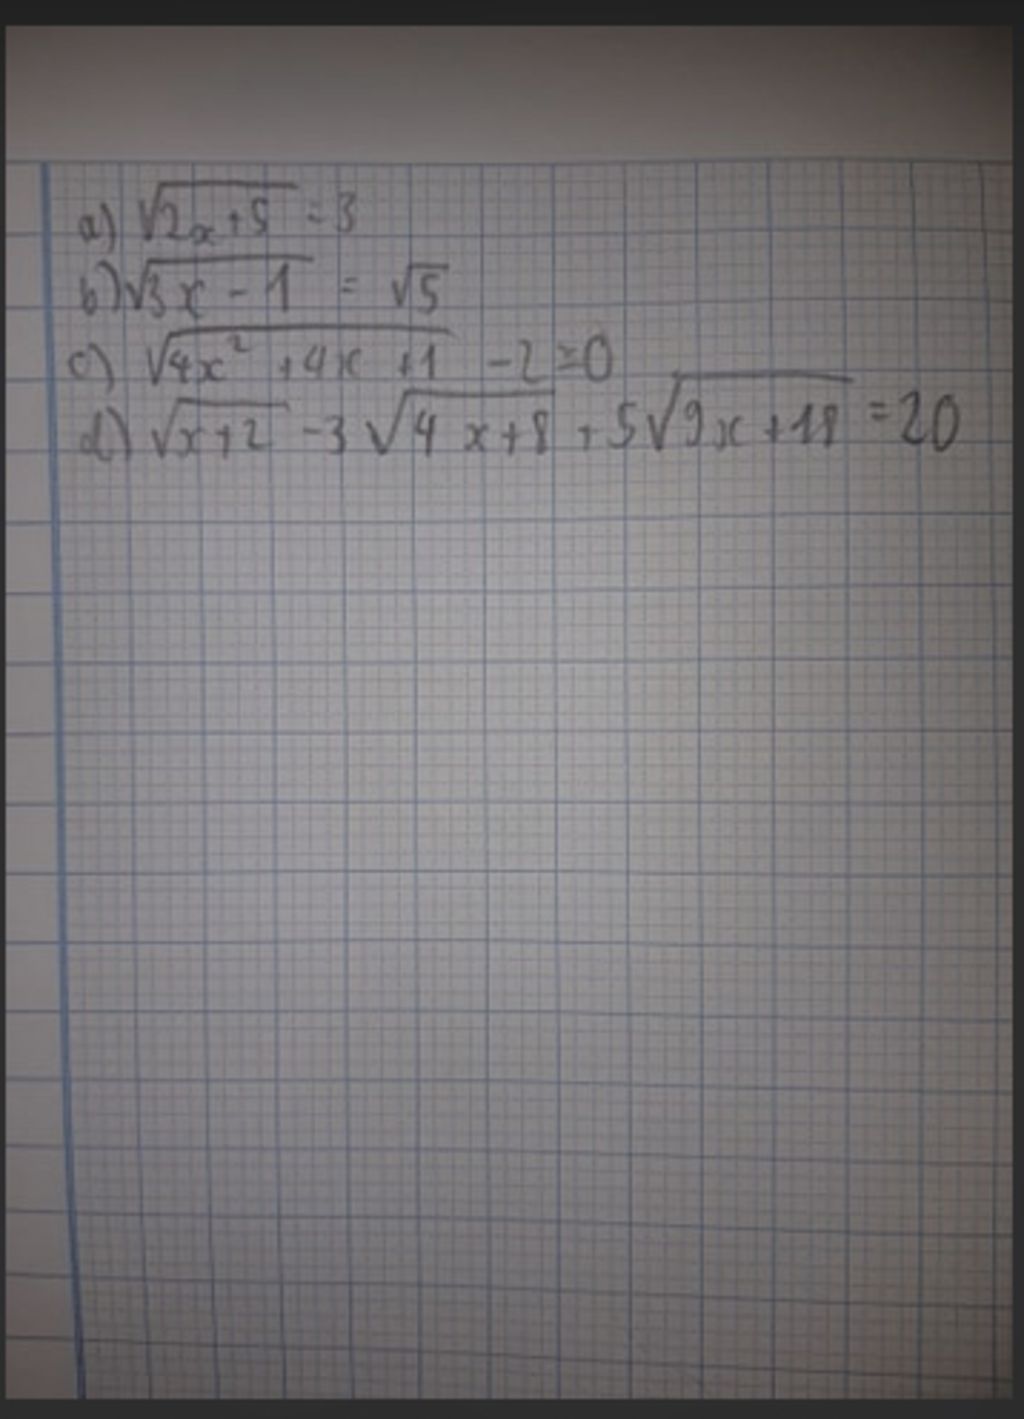 a) √(2x+5) = 3
b) √(3x - 1) = √5
c) √(4x² + 4x + 1) - 2 = 0
d) √(x+2) - 3√(4x+8) + 5√(9x+18) = 20